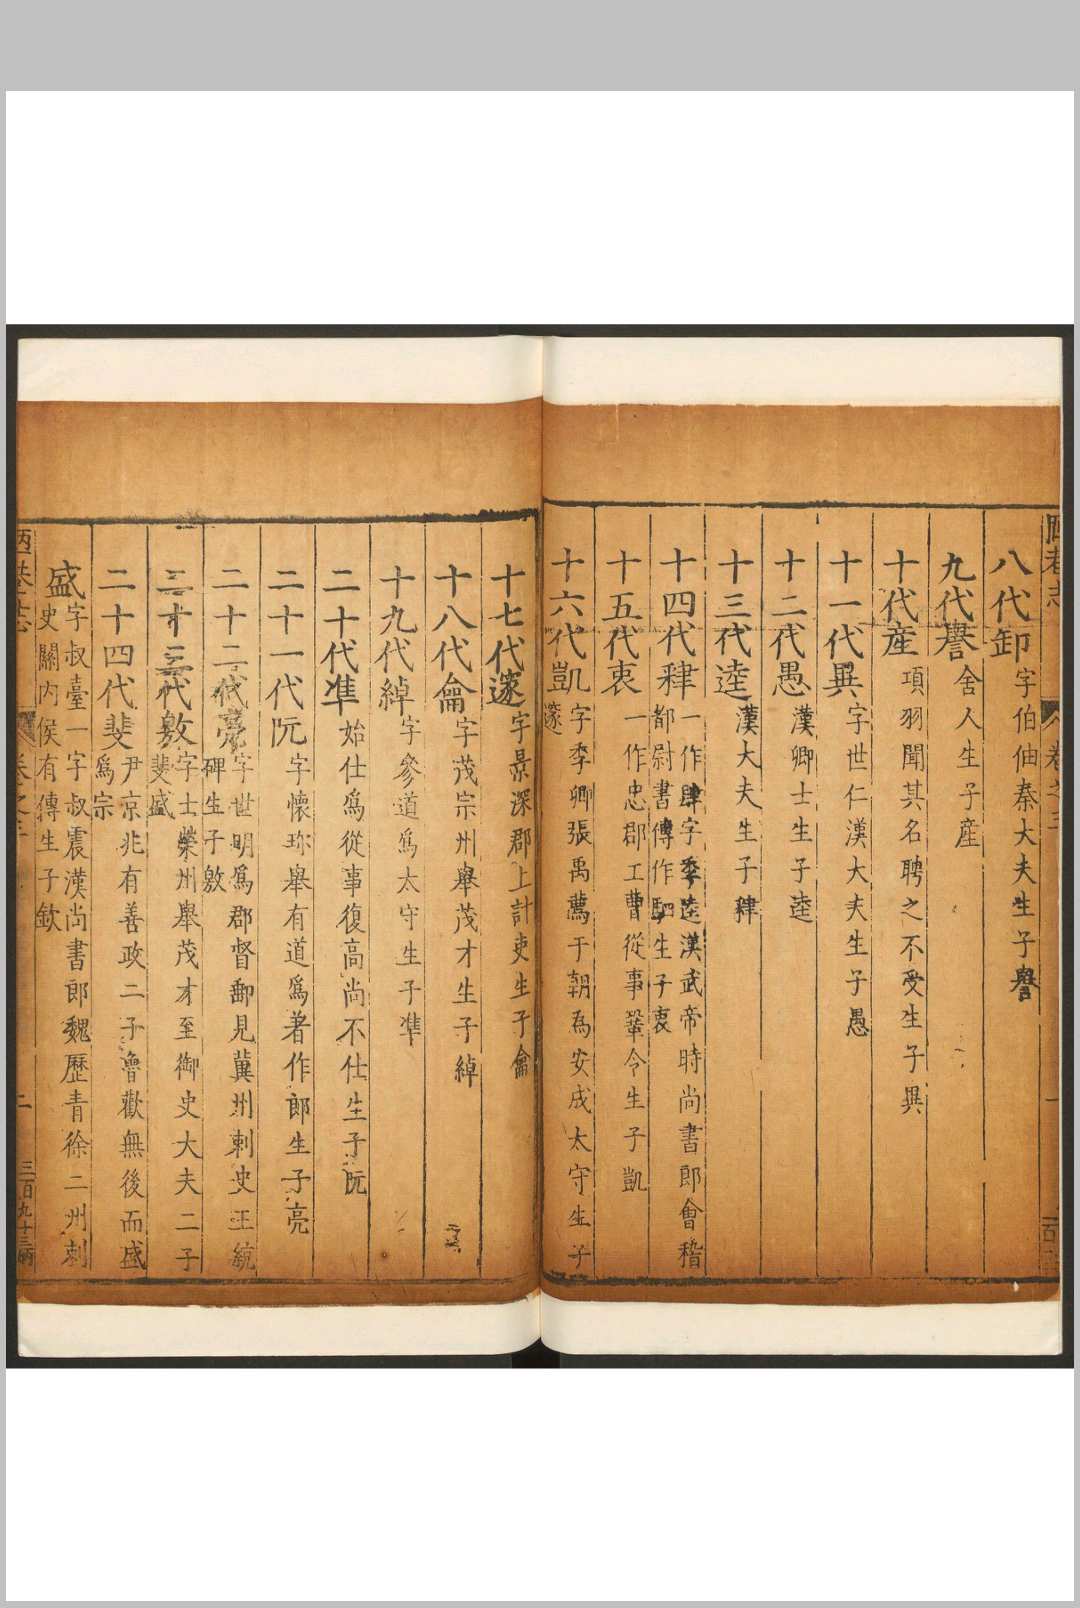 八代卸字伯伷秦大夫生子譽
九代譽舍人生子産
十代産項羽聞其名聘之不受生子異
十一代異字世仁漢大夫生子愚
十二代愚漢卿士生子逵
十三代逵漢大夫生子肂
十四代肂一作肆字季逵漢武帝時尚書郎會稽
都尉書傳作駟生子衷
十五代衷一作忠郡工曹從事鞏令生子凱
十六代凱字季卿張禹薦于朝爲安成太守生子
邃
十七代邃字景深郡上計吏生子龠
十八代龠字茂宗州舉茂才生子綽
十九代綽字參道爲太守生子準
二十代準始仕爲從事復高尚不仕生子阮
二十一代阮字懷珎舉有道爲著作郎生子亮
二十二代亮字世明爲郡督郵見冀州刺史王純
碑生子敫
二十三代敫字士榮州舉茂才至御史大夫二子
斐盛
二十四代斐尹京兆有善政二子魯歡無後而盛
爲宗
盛字叔臺一字叔震漢尚書郎魏歷青徐二州刺
史關内侯有傳生子欽
陋巷志 卷之三 二 三百九十三